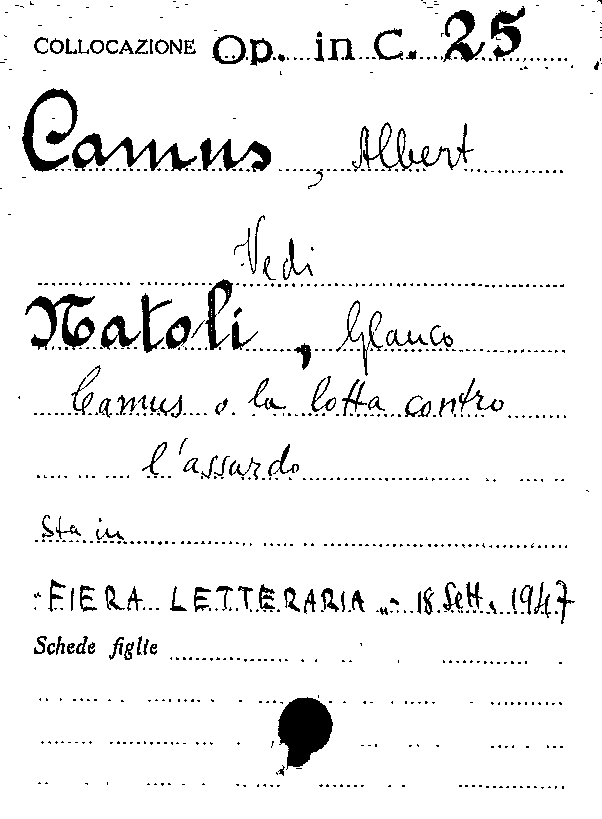 COLLOCAZIONE Op. in C. 25
Camus, Albert
Vedi
Natoli, Glauco
Camus o la lotta contro
l'assurdo
Sta in
"FIERA LETTERARIA" - 18 Sett. 1947
Schede figlie